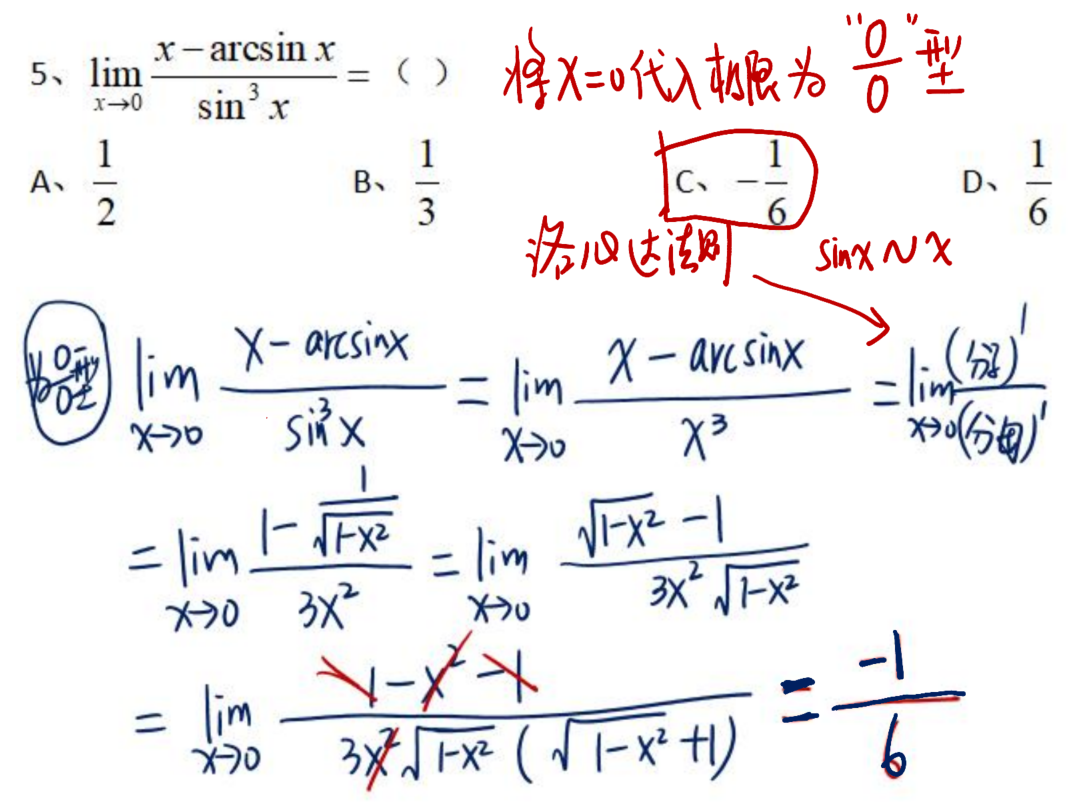 5、$\lim\limits_{x \to 0} \frac{x - \arcsin x}{\sin^3 x} =$（ ） 将x=0代入极限为"$\frac{0}{0}$"型
A、$\frac{1}{2}$ B、$\frac{1}{3}$ C、$-\frac{1}{6}$ D、$\frac{1}{6}$
洛必达法则 sinx ~ x
为$\frac{0}{0}$型 $\lim\limits_{x \to 0} \frac{x - \arcsin x}{\sin^3 x} = \lim\limits_{x \to 0} \frac{x - \arcsin x}{x^3} = \lim\limits_{x \to 0} \frac{(分子)'}{(分母)'}$
$= \lim\limits_{x \to 0} \frac{1 - \frac{1}{\sqrt{1-x^2}}}{3x^2} = \lim\limits_{x \to 0} \frac{\sqrt{1-x^2} - 1}{3x^2 \sqrt{1-x^2}}$
$= \lim\limits_{x \to 0} \frac{1 - x^2 - 1}{3x^2 \sqrt{1-x^2} (\sqrt{1-x^2} + 1)} = \frac{-1}{6}$